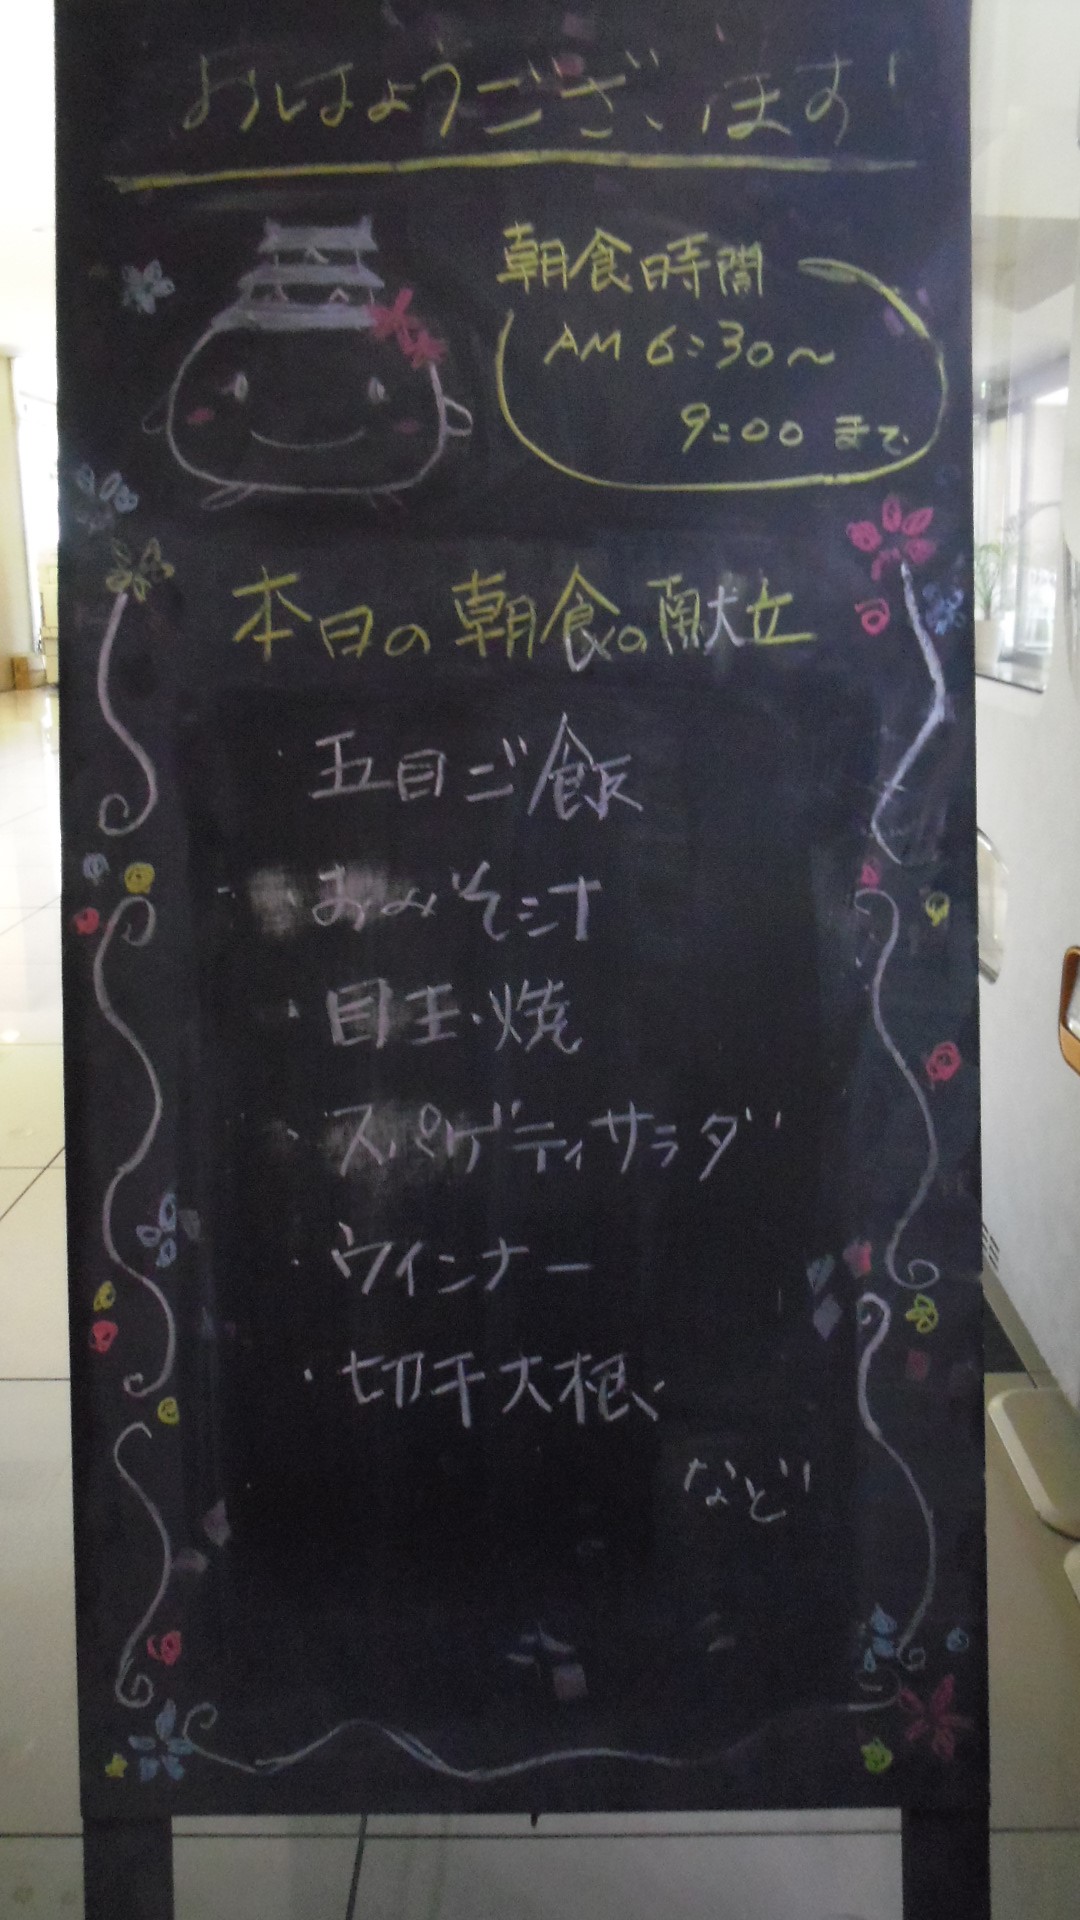 おはようございます!
朝食時間
AM 6:30~
9:00 まで
本日の朝食の献立
・五目ご飯
・おみそ汁
・目玉焼
・スパゲティサラダ
・ウインナー
・切干大根
など